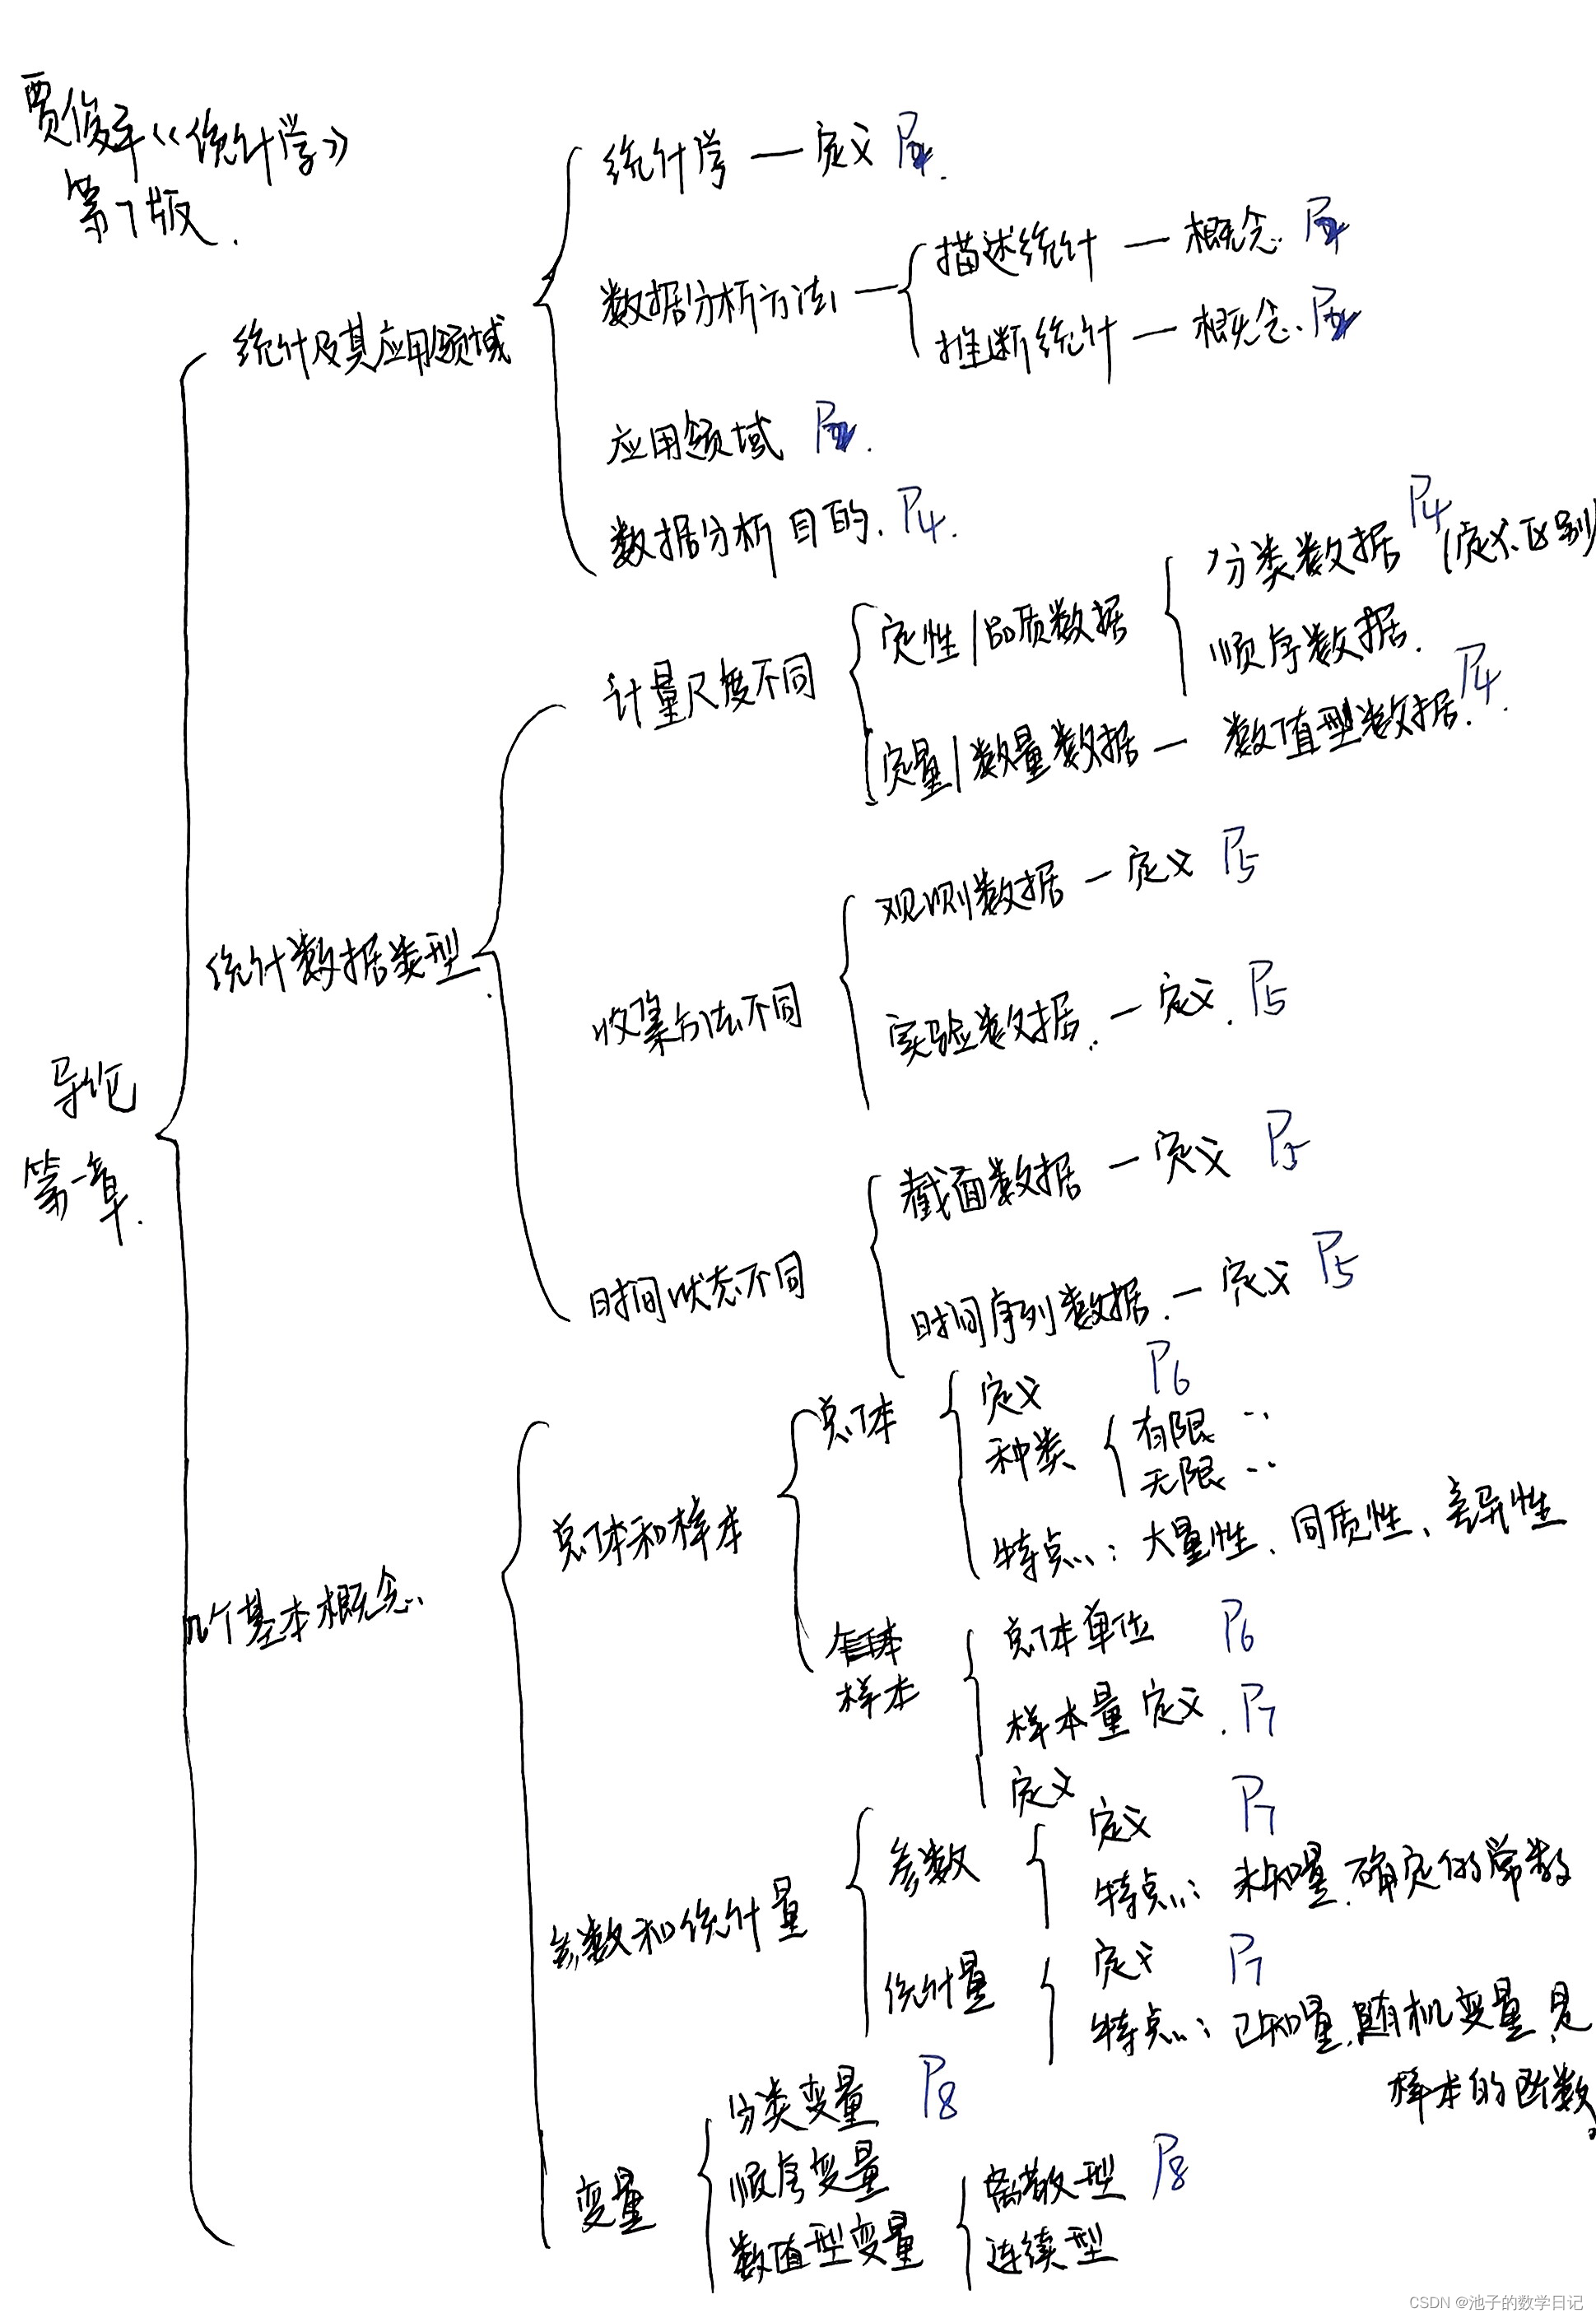 贾俊平《统计学》
第7版.
统计学 — 定义 P
数据分析方法 —
描述统计 — 概念 P
推断统计 — 概念. P
统计及其应用领域
应用领域 P
数据分析目的. P4.
计量尺度不同
定性|品质数据
分类数据 P4 (定义、区别
顺序数据.
定量|数量数据 — 数值型数据. P4.
统计数据类型.
收集方法不同
观测数据 — 定义 P5
实验数据. — 定义. P5
时间状态不同
截面数据 — 定义 P5
时间序列数据. — 定义 P5
导论
第一章.
几个基本概念.
总体和样本
总体
定义 P6
种类
有限 ..
无限 ..
特点: 大量性、同质性、差异性
样本
总体单位 P6
样本量定义. P7
定义
参数和统计量
参数
定义 P7
特点: 未知量、确定的常数
统计量
定义 P7
特点: 已知量、随机变量,是
样本的函数。
变量
分类变量 P8
顺序变量
数值型变量
离散型 P8
连续型
CSDN @池子的数学日记